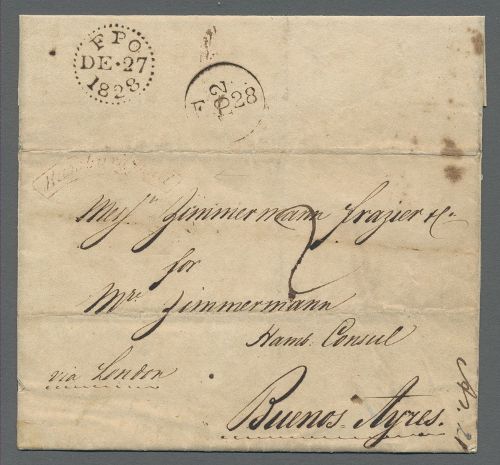 FPO
DE·27
1828
F 28
Mess.rs Zimmermann Frazier & Co.
2
for
Mrs. Zimmermann
Hamb. Consul
via London
Buenos-Ayres.